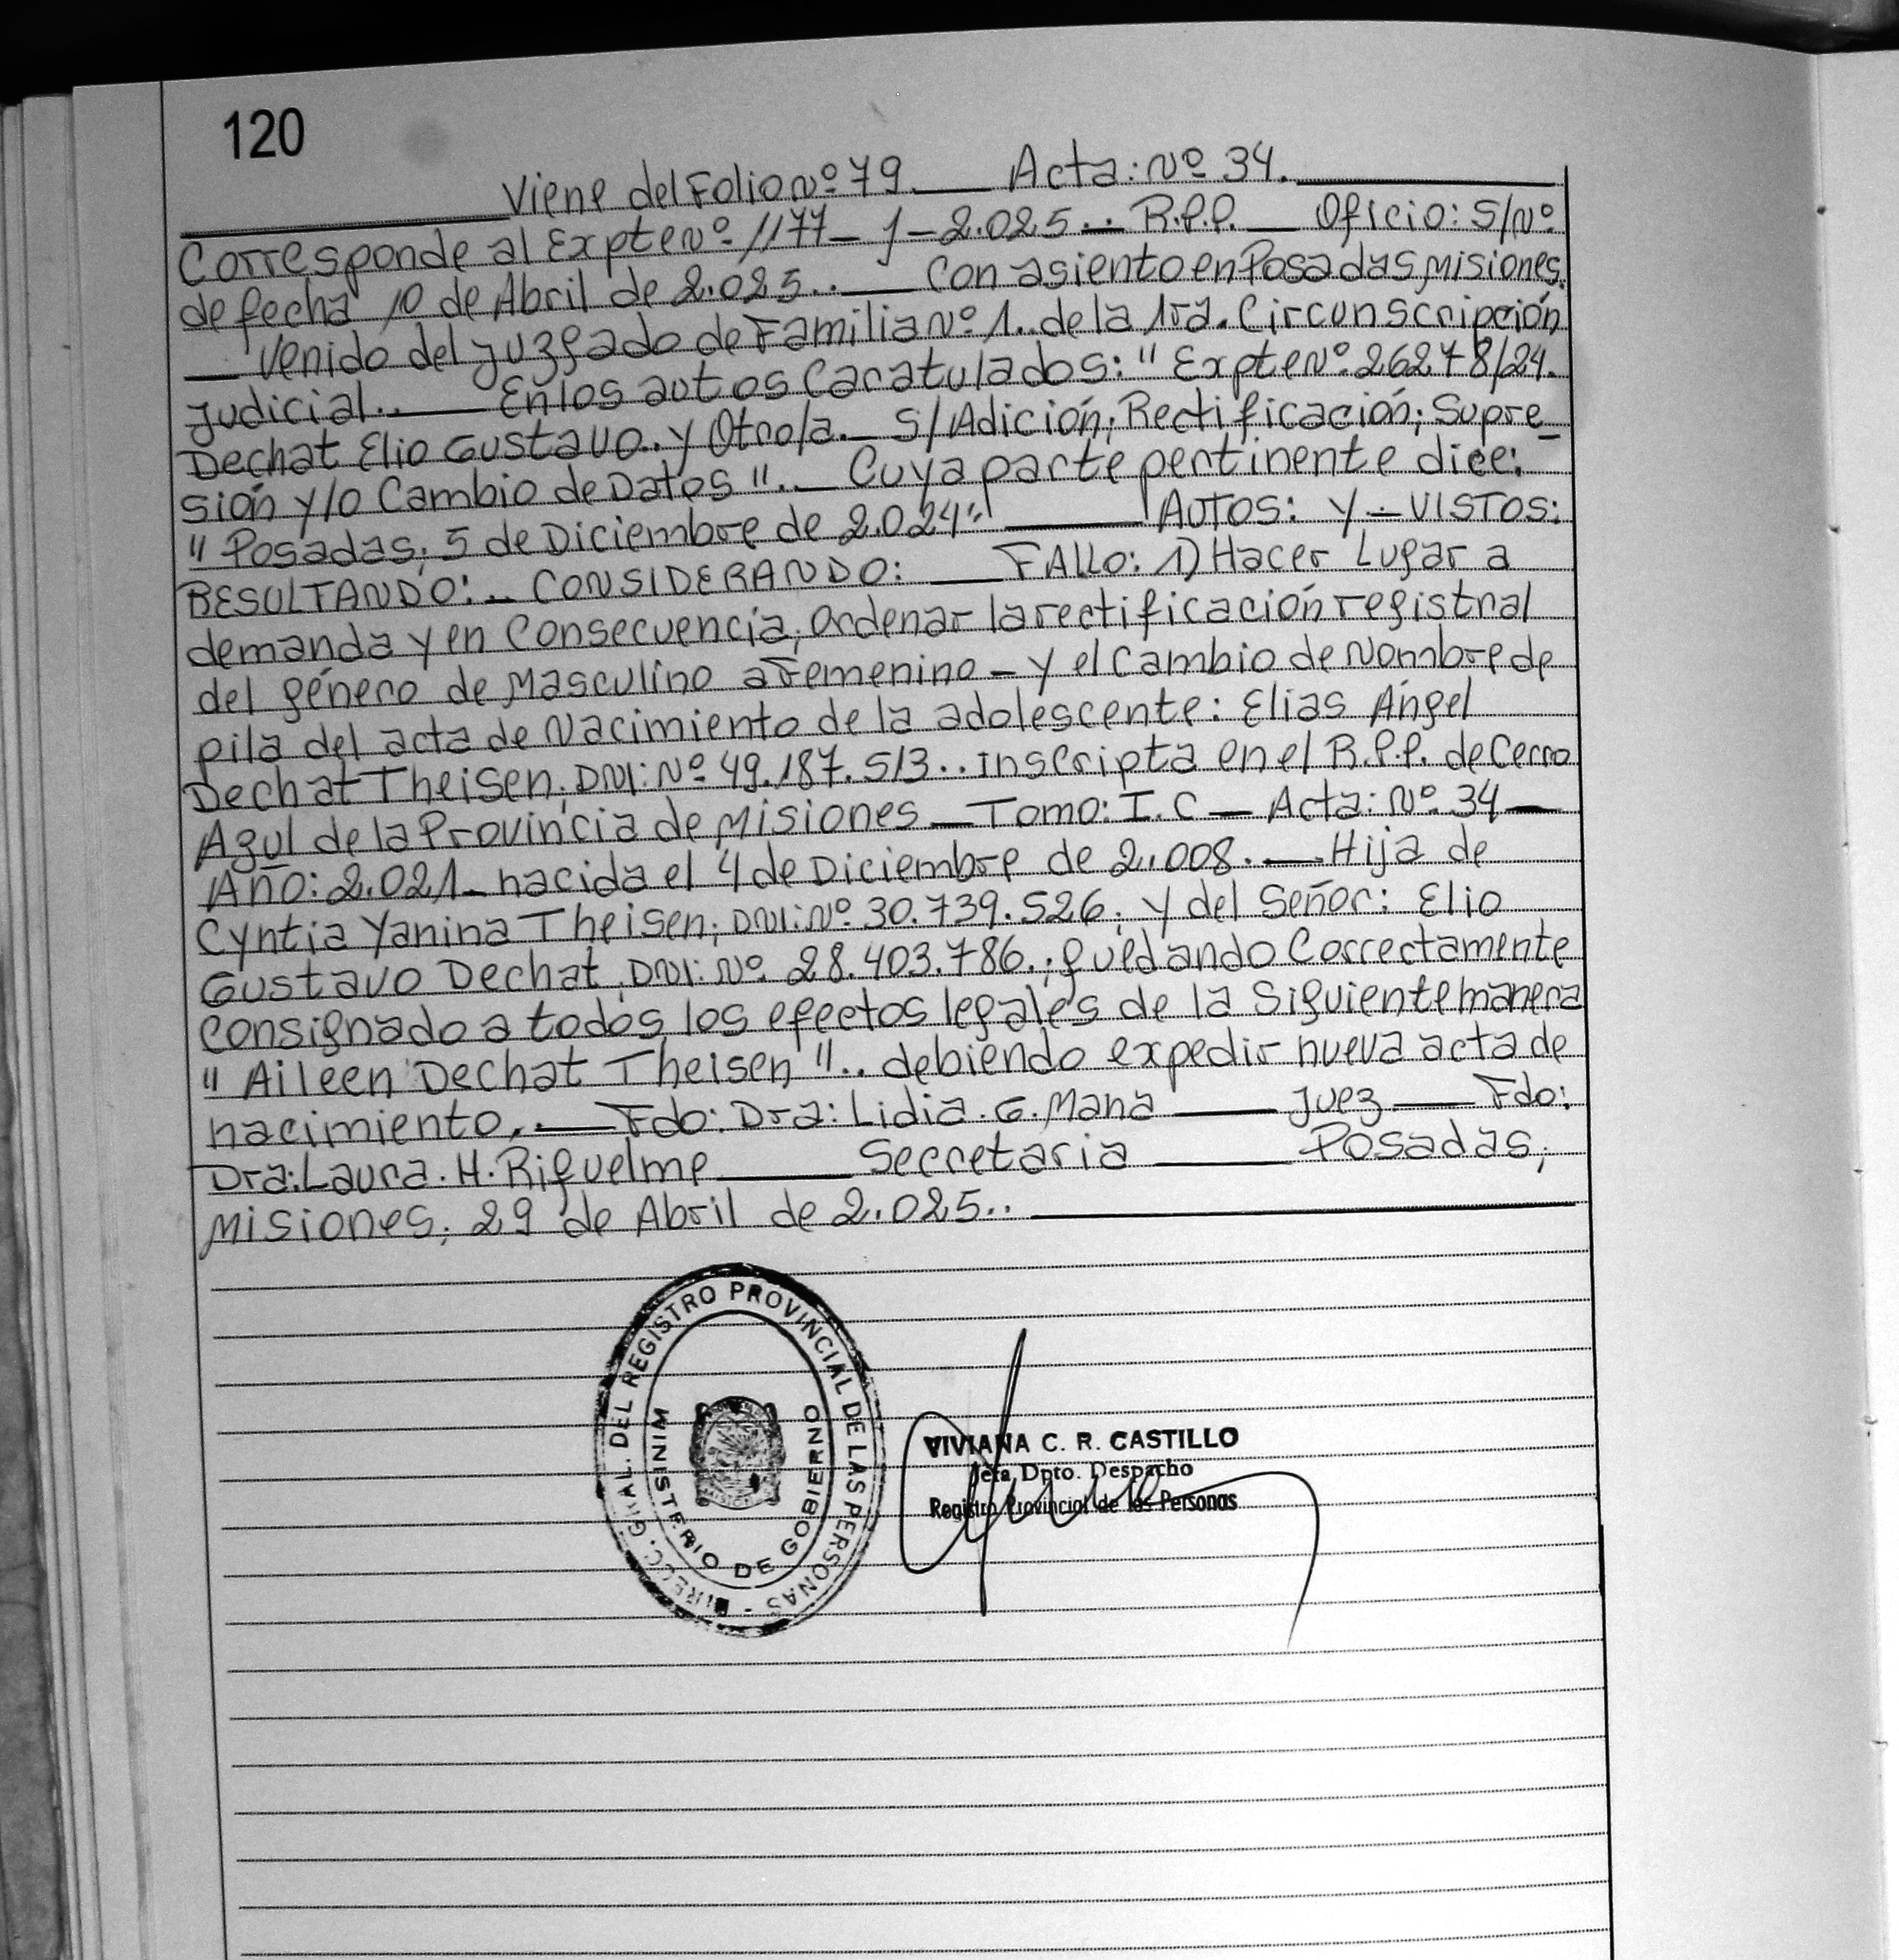 120
Viene del Folio Nº 79. Acta: Nº 34.
Corresponde al Expte Nº 1177-J-2.025.. R.P.P. Oficio: S/Nº
de fecha 10 de Abril de 2.025.. Con asiento en Posadas, Misiones.
Venido del Juzgado de Familia Nº 1.. de la 1ra. Circunscripción
Judicial.. En los autos Caratulados: "Expte Nº 26278/24.
Dechat Elio Gustavo.. y Otro/a. S/Adición; Rectificación; Supre_
sión y/o Cambio de Datos".. Cuya parte pertinente dice:
"Posadas, 5 de Diciembre de 2.024" AUTOS: Y - VISTOS:
RESULTANDO:.. CONSIDERANDO: FALLO: 1) Hacer Lugar a
demanda y en Consecuencia, Ordenar la rectificación registral
del género de Masculino a Femenino - y el Cambio de Nombre de
pila del acta de Nacimiento de la adolescente: Elias Ángel
Dechat Theisen, DNI: Nº 49.187.513.. inscripta en el R.P.P. de Cerro
Azul de la Provincia de Misiones - Tomo: I.C - Acta: Nº 34 -
Año: 2.021 - nacida el 4 de Diciembre de 2.008.. Hija de
Cyntia Yanina Theisen, DNI: Nº 30.739.526, y del Señor: Elio
Gustavo Dechat, DNI: Nº 28.403.786.; quedando Correctamente
Consignado a todos los efectos legales de la Siguiente manera
"Aileen Dechat Theisen".. debiendo expedir nueva acta de
nacimiento.. Fdo: Dra: Lidia. G. Mana Juez Fdo:
Dra: Laura. H. Riquelme Secretaria Posadas,
Misiones, 29 de Abril de 2.025..
DIRECC. GRAL. DEL REGISTRO PROVINCIAL DE LAS PERSONAS -
MINISTERIO DE GOBIERNO
VIVIANA C. R. CASTILLO
Jefa Dpto. Despacho
Registro Provincial de las Personas